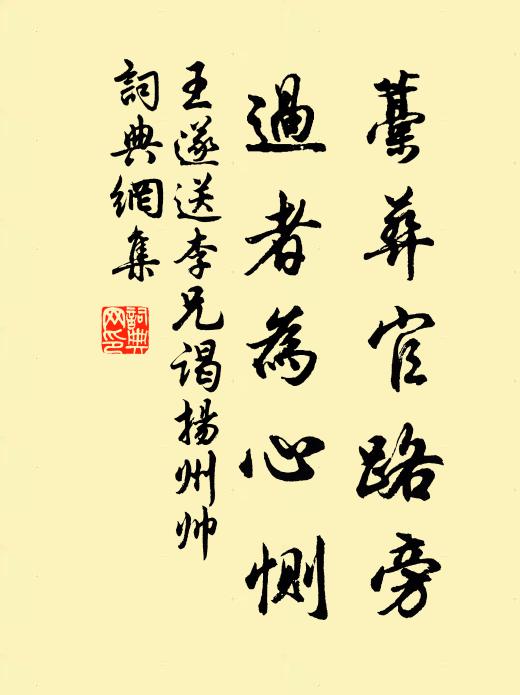 藁葬官路旁
過者為心惻
王遂送李兄謁揚州帅
詞典網集
詞典网印